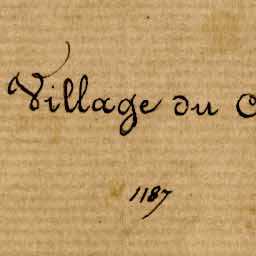 Village du C
1187